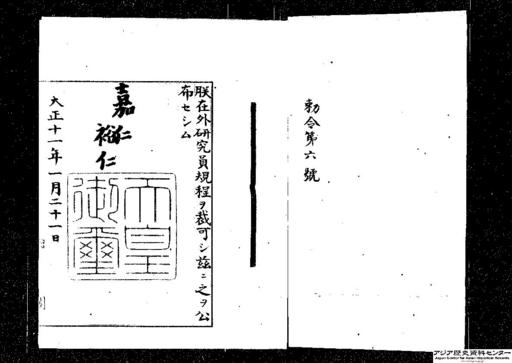 勅令第六號
朕在外研究員規程ヲ裁可シ茲ニ之ヲ公
布セシム
嘉仁
裕仁
天皇御璽
大正十一年一月二十一日
アジア歴史資料センター
Japan Center for Asian Historical Records